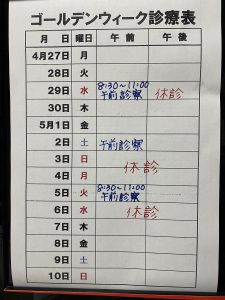 ゴールデンウィーク診療表
月 日 曜日 午 前 午 後
4月27日 月
28日 火
29日 水 8:30~11:00 午前診察 休診
30日 木
5月1日 金
2日 土 午前診察
3日 日 休診
4日 月
5日 火 8:30~11:00 午前診察
6日 水 休診
7日 木
8日 金
9日 土
10日 日